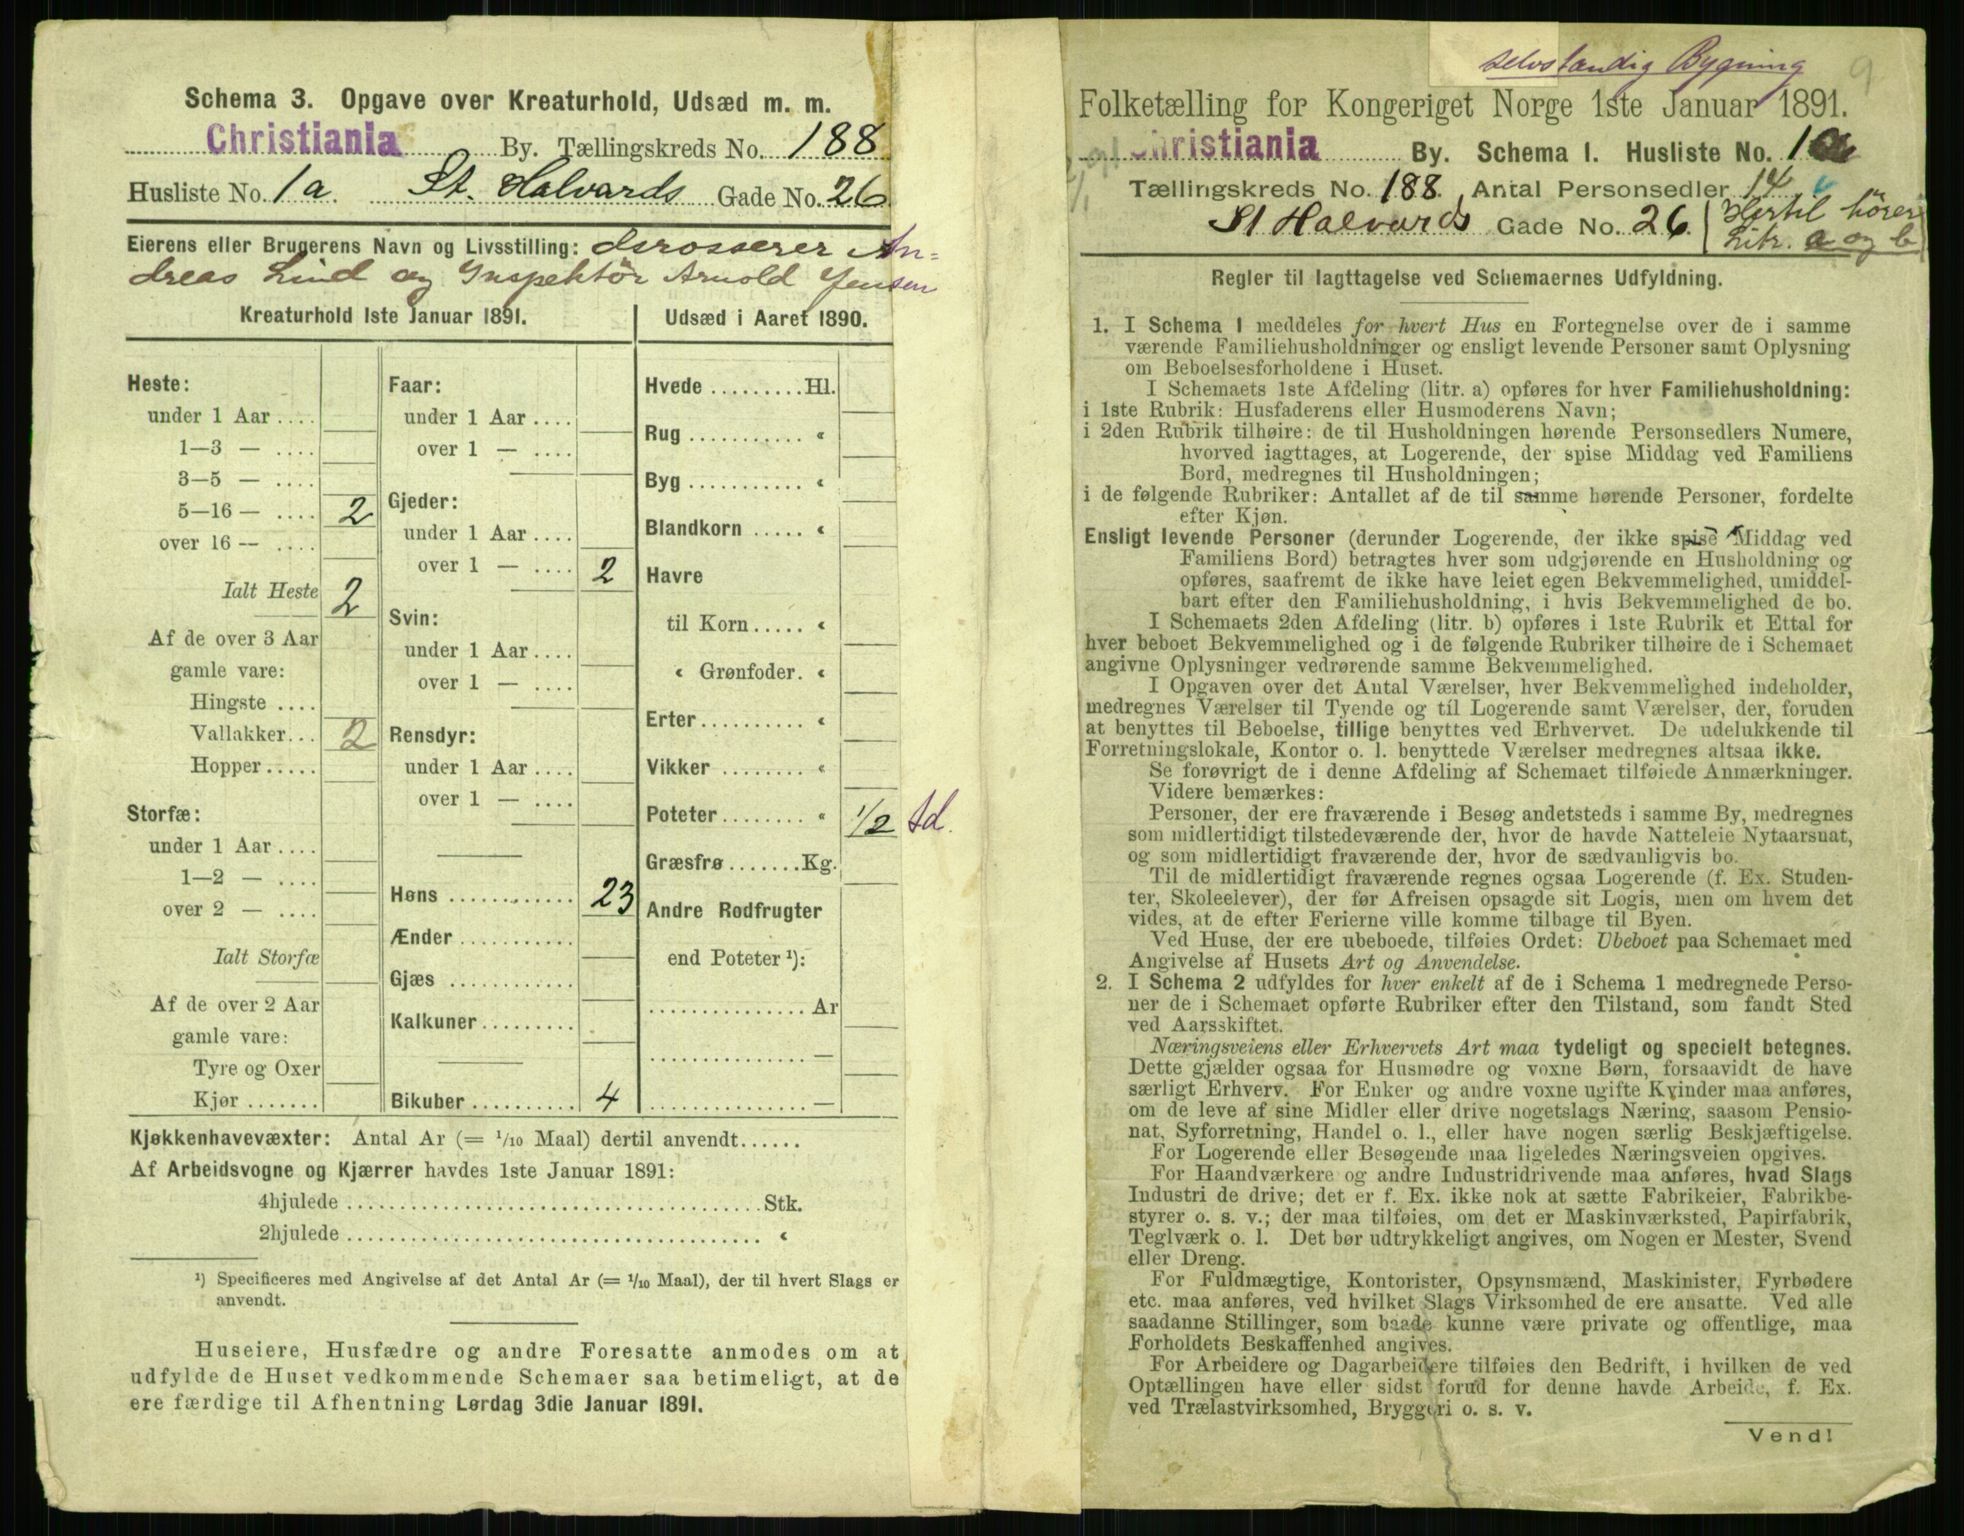 Schema 3. Opgave over Kreaturhold, Udsæd m. m.
Christiania By. Tællingskreds No. 188
Husliste No. 1a. St. Halvards Gade No. 26
Eierens eller Brugerens Navn og Livsstilling: Grosserer An=
dreas Lind og Inspektør Arnold Jensen
Kreaturhold 1ste Januar 1891.
Heste:
under 1 Aar ....
1—3 — ....
3—5 — ....
5—16 — .... 2
over 16 — ....
Ialt Heste 2
Af de over 3 Aar
gamle vare:
Hingste ....
Vallakker... 2
Hopper.....
Storfæ:
under 1 Aar....
1—2 — ....
over 2 — ....
Ialt Storfæ
Af de over 2 Aar
gamle vare:
Tyre og Oxer
Kjør .......
Faar:
under 1 Aar ....
over 1 — ....
Gjeder:
under 1 Aar....
over 1 — .... 2
Svin:
under 1 Aar....
over 1 — ....
Rensdyr:
under 1 Aar....
over 1 — ....
Høns ........... 23
Ænder ...........
Gjæs ............
Kalkuner.........
Bikuber.......... 4
Udsæd i Aaret 1890.
Hvede .........Hl.
Rug ........... «
Byg ........... «
Blandkorn ..... «
Havre
til Korn..... «
« Grønfoder. «
Erter.......... «
Vikker ........ «
Poteter........ « 1/2 td.
Græsfrø.......Kg.
Andre Rodfrugter
end Poteter ¹):
...............Ar
...............—
...............—
Kjøkkenhavevæxter: Antal Ar (= 1/10 Maal) dertil anvendt......
Af Arbeidsvogne og Kjærrer havdes 1ste Januar 1891:
4hjulede ........................................Stk.
2hjulede ........................................ «
¹) Specificeres med Angivelse af det Antal Ar (= 1/10 Maal), der til hvert Slags er
anvendt.
Huseiere, Husfædre og andre Foresatte anmodes om at
udfylde de Huset vedkommende Schemaer saa betimeligt, at de
ere færdige til Afhentning Lørdag 3die Januar 1891.
selvstændig Bygning 9
Folketælling for Kongeriget Norge 1ste Januar 1891.
Christiania By. Schema I. Husliste No. 1a
Tællingskreds No. 188. Antal Personsedler 14
St Halvards Gade No. 26. (Hertil hører
Litr. a og b)
Regler til Iagttagelse ved Schemaernes Udfyldning.
1. I Schema 1 meddeles for hvert Hus en Fortegnelse over de i samme
værende Familiehusholdninger og ensligt levende Personer samt Oplysning
om Beboelsesforholdene i Huset.
I Schemaets 1ste Afdeling (litr. a) opføres for hver Familiehusholdning:
i 1ste Rubrik: Husfaderens eller Husmoderens Navn;
i 2den Rubrik tilhøire: de til Husholdningen hørende Personsedlers Numere,
hvorved iagttages, at Logerende, der spise Middag ved Familiens
Bord, medregnes til Husholdningen;
i de følgende Rubriker: Antallet af de til samme hørende Personer, fordelte
efter Kjøn.
Ensligt levende Personer (derunder Logerende, der ikke spise Middag ved
Familiens Bord) betragtes hver som udgjørende en Husholdning og
opføres, saafremt de ikke have leiet egen Bekvemmelighed, umiddel-
bart efter den Familiehusholdning, i hvis Bekvemmelighed de bo.
I Schemaets 2den Afdeling (litr. b) opføres i 1ste Rubrik et Ettal for
hver beboet Bekvemmelighed og i de følgende Rubriker tilhøire de i Schemaet
angivne Oplysninger vedrørende samme Bekvemmelighed.
I Opgaven over det Antal Værelser, hver Bekvemmelighed indeholder,
medregnes Værelser til Tyende og til Logerende samt Værelser, der, foruden
at benyttes til Beboelse, tillige benyttes ved Erhvervet. De udelukkende til
Forretningslokale, Kontor o. l. benyttede Værelser medregnes altsaa ikke.
Se forøvrigt de i denne Afdeling af Schemaet tilføiede Anmærkninger.
Videre bemærkes:
Personer, der ere fraværende i Besøg andetsteds i samme By, medregnes
som midlertidigt tilstedeværende der, hvor de havde Natteleie Nytaarsnat,
og som midlertidigt fraværende der, hvor de sædvanligvis bo.
Til de midlertidigt fraværende regnes ogsaa Logerende (f. Ex. Studen-
ter, Skoleelever), der før Afreisen opsagde sit Logis, men om hvem det
vides, at de efter Ferierne ville komme tilbage til Byen.
Ved Huse, der ere ubeboede, tilføies Ordet: Ubeboet paa Schemaet med
Angivelse af Husets Art og Anvendelse.
2. I Schema 2 udfyldes for hver enkelt af de i Schema 1 medregnede Perso-
ner de i Schemaet opførte Rubriker efter den Tilstand, som fandt Sted
ved Aarsskiftet.
Næringsveiens eller Erhvervets Art maa tydeligt og specielt betegnes.
Dette gjælder ogsaa for Husmødre og voxne Børn, forsaavidt de have
særligt Erhverv. For Enker og andre voxne ugifte Kvinder maa anføres,
om de leve af sine Midler eller drive nogetslags Næring, saasom Pensio-
nat, Syforretning, Handel o. l., eller have nogen særlig Beskjæftigelse.
For Logerende eller Besøgende maa ligeledes Næringsveien opgives.
For Haandværkere og andre Industridrivende maa anføres, hvad Slags
Industri de drive; det er f. Ex. ikke nok at sætte Fabrikeier, Fabrikbe-
styrer o. s. v.; der maa tilføies, om det er Maskinværksted, Papirfabrik,
Teglværk o. l. Det bør udtrykkeligt angives, om Nogen er Mester, Svend
eller Dreng.
For Fuldmægtige, Kontorister, Opsynsmænd, Maskinister, Fyrbødere
etc. maa anføres, ved hvilket Slags Virksomhed de ere ansatte. Ved alle
saadanne Stillinger, som baade kunne være private og offentlige, maa
Forholdets Beskaffenhed angives.
For Arbeidere og Dagarbeidere tilføies den Bedrift, i hvilken de ved
Optællingen have eller sidst forud for denne havde Arbeide, f. Ex.
ved Trælastvirksomhed, Bryggeri o. s. v.
Vend!